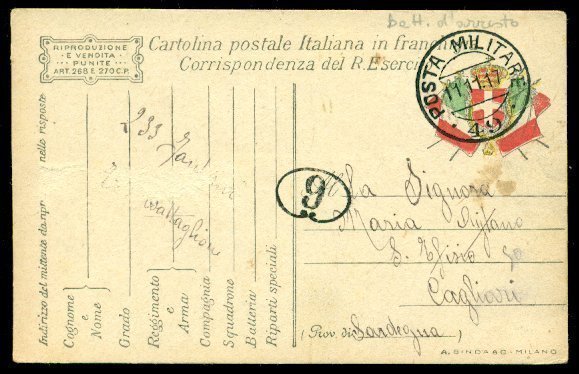 Batt. d'arresto
RIPRODUZIONE
E VENDITA
PUNITE
ART. 268 E 270 C.P.
Cartolina postale Italiana in franchi
Corrispondenza del R. Eserci
POSTA MILITARE
11.11.17
49
9
Indirizzo del mittente da ripr nelle risposte
Cognome
e
Nome
Grado
Reggimento
e
Arma
Compagnia
Squadrone
Batteria
Riparti speciali
233
battaglione
Alla Signora
Maria
S. Efisio 50
Cagliari
(Prov. di Sardegna)
A. BINDA & C - MILANO